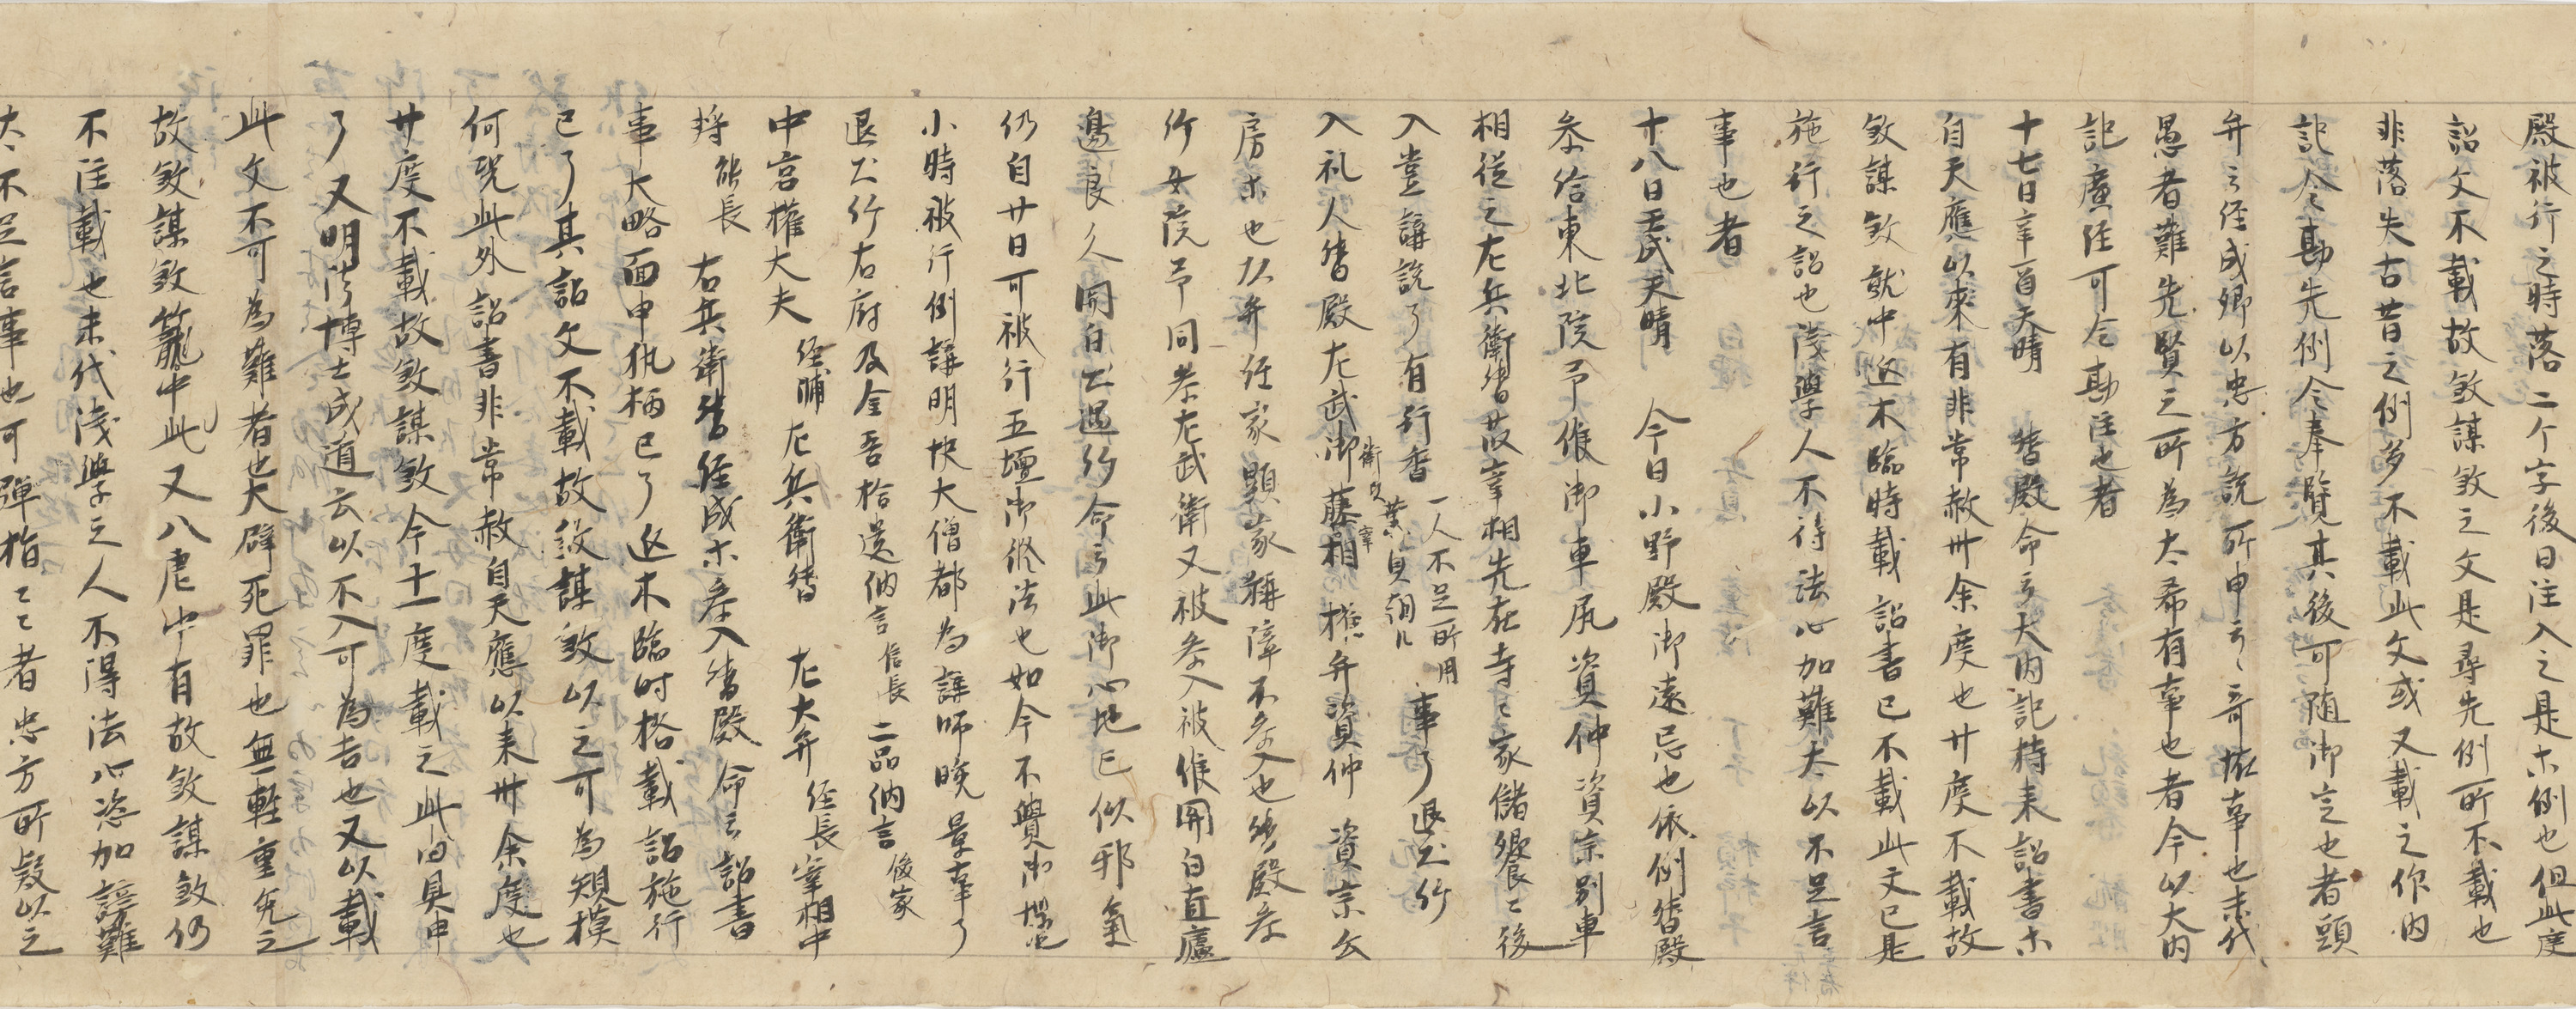 殿被行之時落二个字後日注入之是木例也但此度
詔文不載故敘謀敘之文是尋先例所不載也
非落失古昔之例多不載此文或又載之作内
記令勘先例令奉覧其後可随御定也者頭
弁云経成卿以忠方説所申云々奇恠事也末代
愚者難先賢之所為太希有事也者今以大内
記廣経可令勘注也者
十七日辛酉天晴 督殿命云大内記持来詔書木
自天應以来有非常赦卅余度也廿度不載故
敘謀敘就中近木臨時載詔書已不載此文已是
施行之詔也浅學人不待法心加難太以不足言
事也者
十八日壬戌天晴 今日小野殿御遠忌也依例督殿
参給東北院予候御車尻資仲資宗別車
相従之左兵衛督故宰相先在寺々家儲饗々後
入堂講説了有行香一人不足所用業貞朝臣 事了退出行
入礼人督殿左武衛 藤宰相 権弁資仲 資宗公
房木也左弁経家顕家称障不参也督殿参
行女院予同参左武衛又被参入被候関白直廬
邊良久関白出過行命云此御心地已似邪氣
仍自廿日可被行五壇御修法也如今不興御㦮
小時被行例講明快大僧都為講師晩景事了
退出行右府及金吾拾遺納言信長二品納言後家
中宮権大夫経輔左兵衛督 左大弁経長宰相中
将能長 右兵衛督経成木参入督殿命云詔書
事大略面申執柄已了近木臨时格載詔施行
已了其詔文不載故敘謀敘以之可為規模
何況此外詔書非常赦自天應以来卅余度也
廿度不載故敘謀敘今十一度載之此由具申
了又明法博士成道云以不入可為吉也又以載
此文不可為難者也大辟死罪也無軽重免之
故敘謀敘籠中此又八虐中有故敘謀敘仍
不注載也末代浅學之人不得法心恣加謗難
太不足言事也可弾指々々者忠方所疑以之